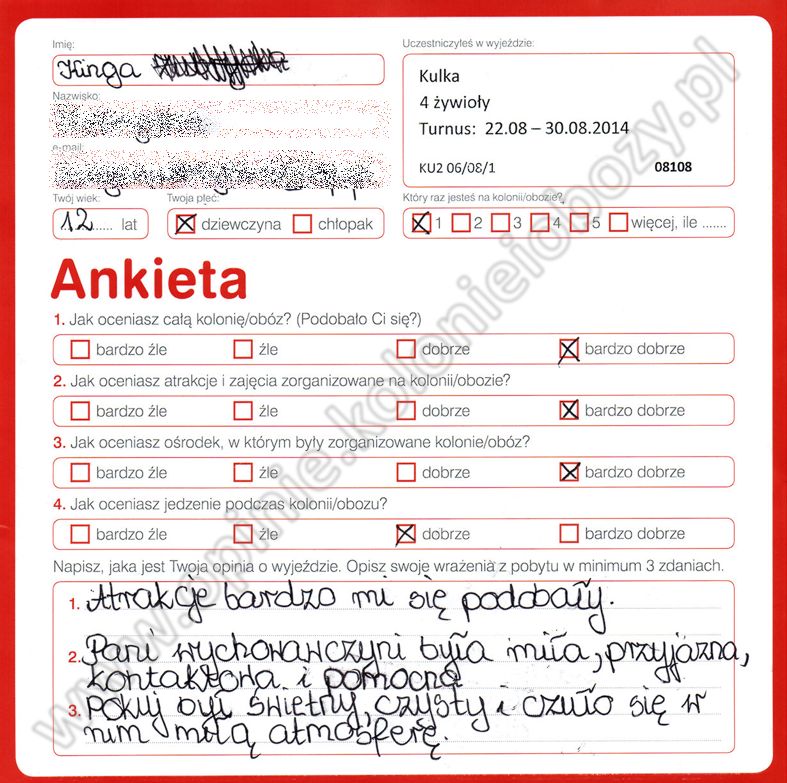 Imię:
Kinga
Uczestniczyłeś w wyjeździe:
Kulka
4 żywioły
Turnus: 22.08 – 30.08.2014
KU2 06/08/1 08108
Nazwisko:
e-mail:
Twój wiek:
12..... lat
Twoja płeć:
dziewczyna chłopak
Który raz jesteś na kolonii/obozie?
1 2 3 4 5 więcej, ile .......
Ankieta
1. Jak oceniasz całą kolonię/obóz? (Podobało Ci się?)
bardzo źle źle dobrze bardzo dobrze
2. Jak oceniasz atrakcje i zajęcia zorganizowane na kolonii/obozie?
bardzo źle źle dobrze bardzo dobrze
3. Jak oceniasz ośrodek, w którym były zorganizowane kolonie/obóz?
bardzo źle źle dobrze bardzo dobrze
4. Jak oceniasz jedzenie podczas kolonii/obozu?
bardzo źle źle dobrze bardzo dobrze
Napisz, jaka jest Twoja opinia o wyjeździe. Opisz swoje wrażenia z pobytu w minimum 3 zdaniach.
1. Atrakcje bardzo mi się podobały.
2. Pani wychowawczyni była miła, przyjazna,
kontaktowa i pomocna
3. Pokuj był świetny, czysty i czuło się w
nim miłą atmosferę.
www.opinie.kolonieiobozy.pl